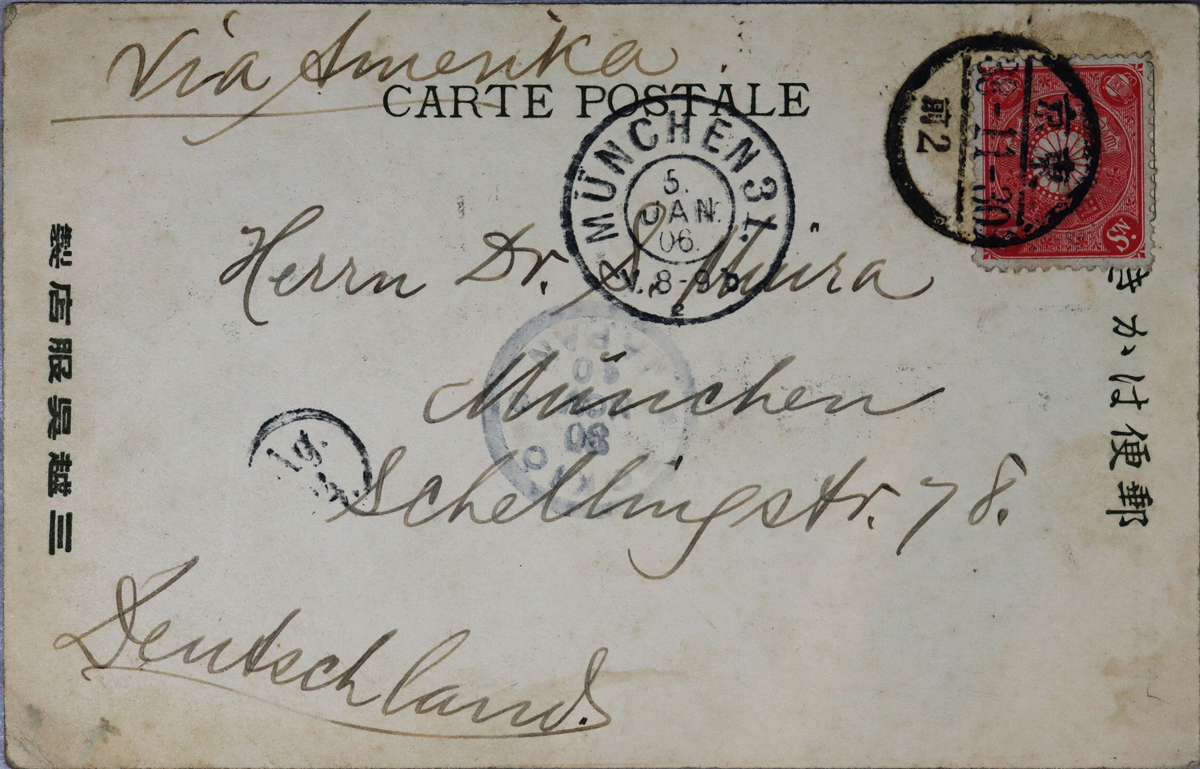 Via Amerika.
CARTE POSTALE
MÜNCHEN 31.
5.
JAN.
06.
V. 8-9
2
東京
38-11-30
前2
Herrn Dr. S. Miura
München
Schellingstr. 78.
Deutschland.
JAPAN
30
郵便はかき
三越呉服店製